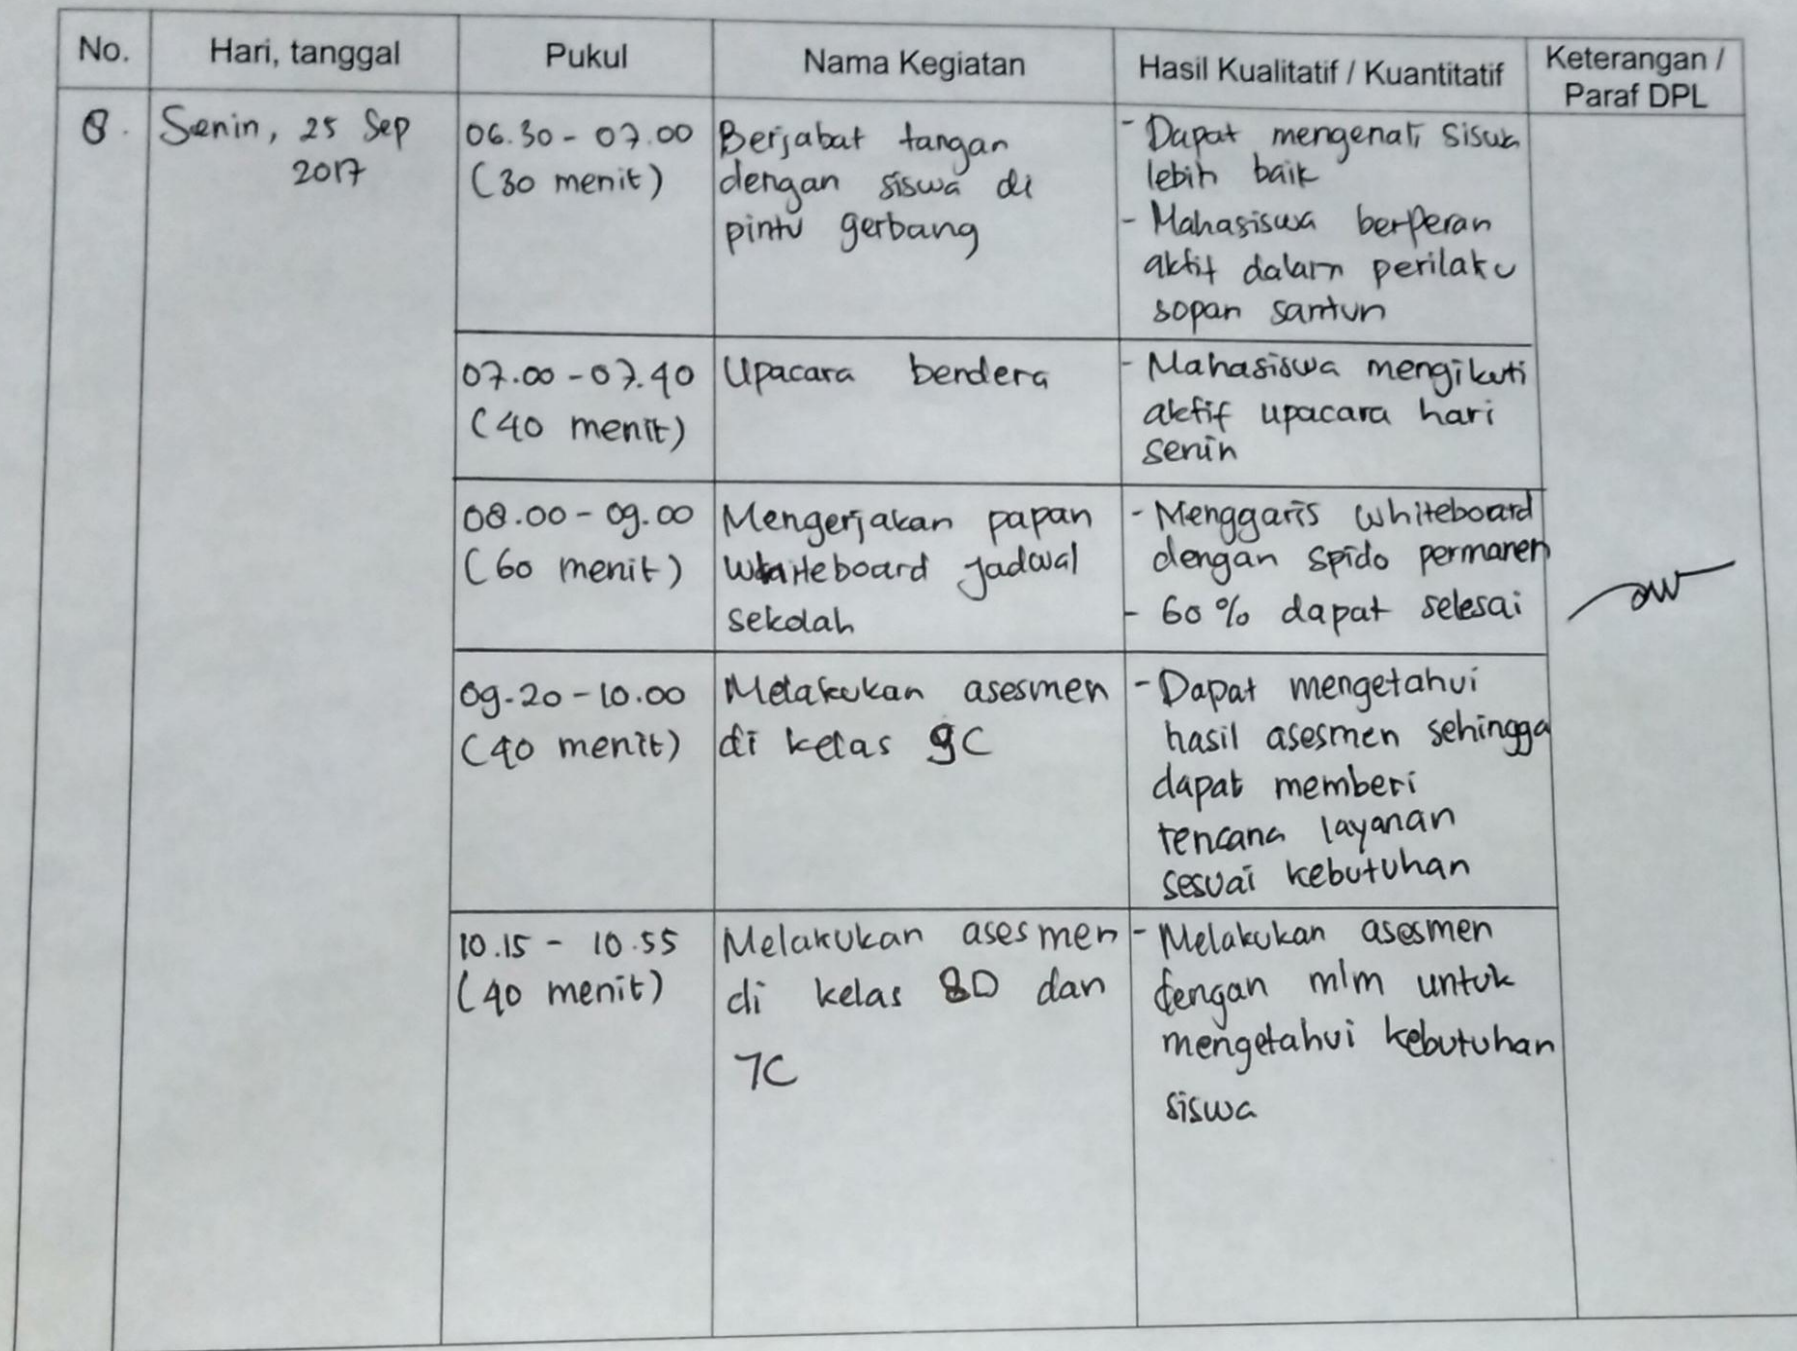 No.
Hari, tanggal
Pukul
Nama Kegiatan
Hasil Kualitatif / Kuantitatif
Keterangan /
Paraf DPL
8.
Senin, 25 Sep
2017
06.30 - 07.00
(30 menit)
Berjabat tangan
dengan siswa di
pintu gerbang
- Dapat mengenali
lebih baik
- Mahasiswa berperan
aktif dalam perilaku
sopan santun
07.00 - 07.40
(40 menit)
Upacara bendera
- Mahasiswa mengikuti
aktif upacara hari
senin
08.00 - 09.00
(60 menit)
Mengerjakan papan
whiteboard jadwal
sekolah
- Menggaris whiteboard
dengan spido permanen
- 60% dapat selesai
09.20 - 10.00
(40 menit)
Melakukan asesmen
di kelas 9C
- Dapat mengetahui
hasil asesmen sehingga
dapat memberi
rencana layanan
sesuai kebutuhan
10.15 - 10.55
(40 menit)
Melakukan asesmen
di kelas 8D dan
7C
- Melakukan asesmen
dengan mlm untuk
mengetahui kebutuhan
siswa